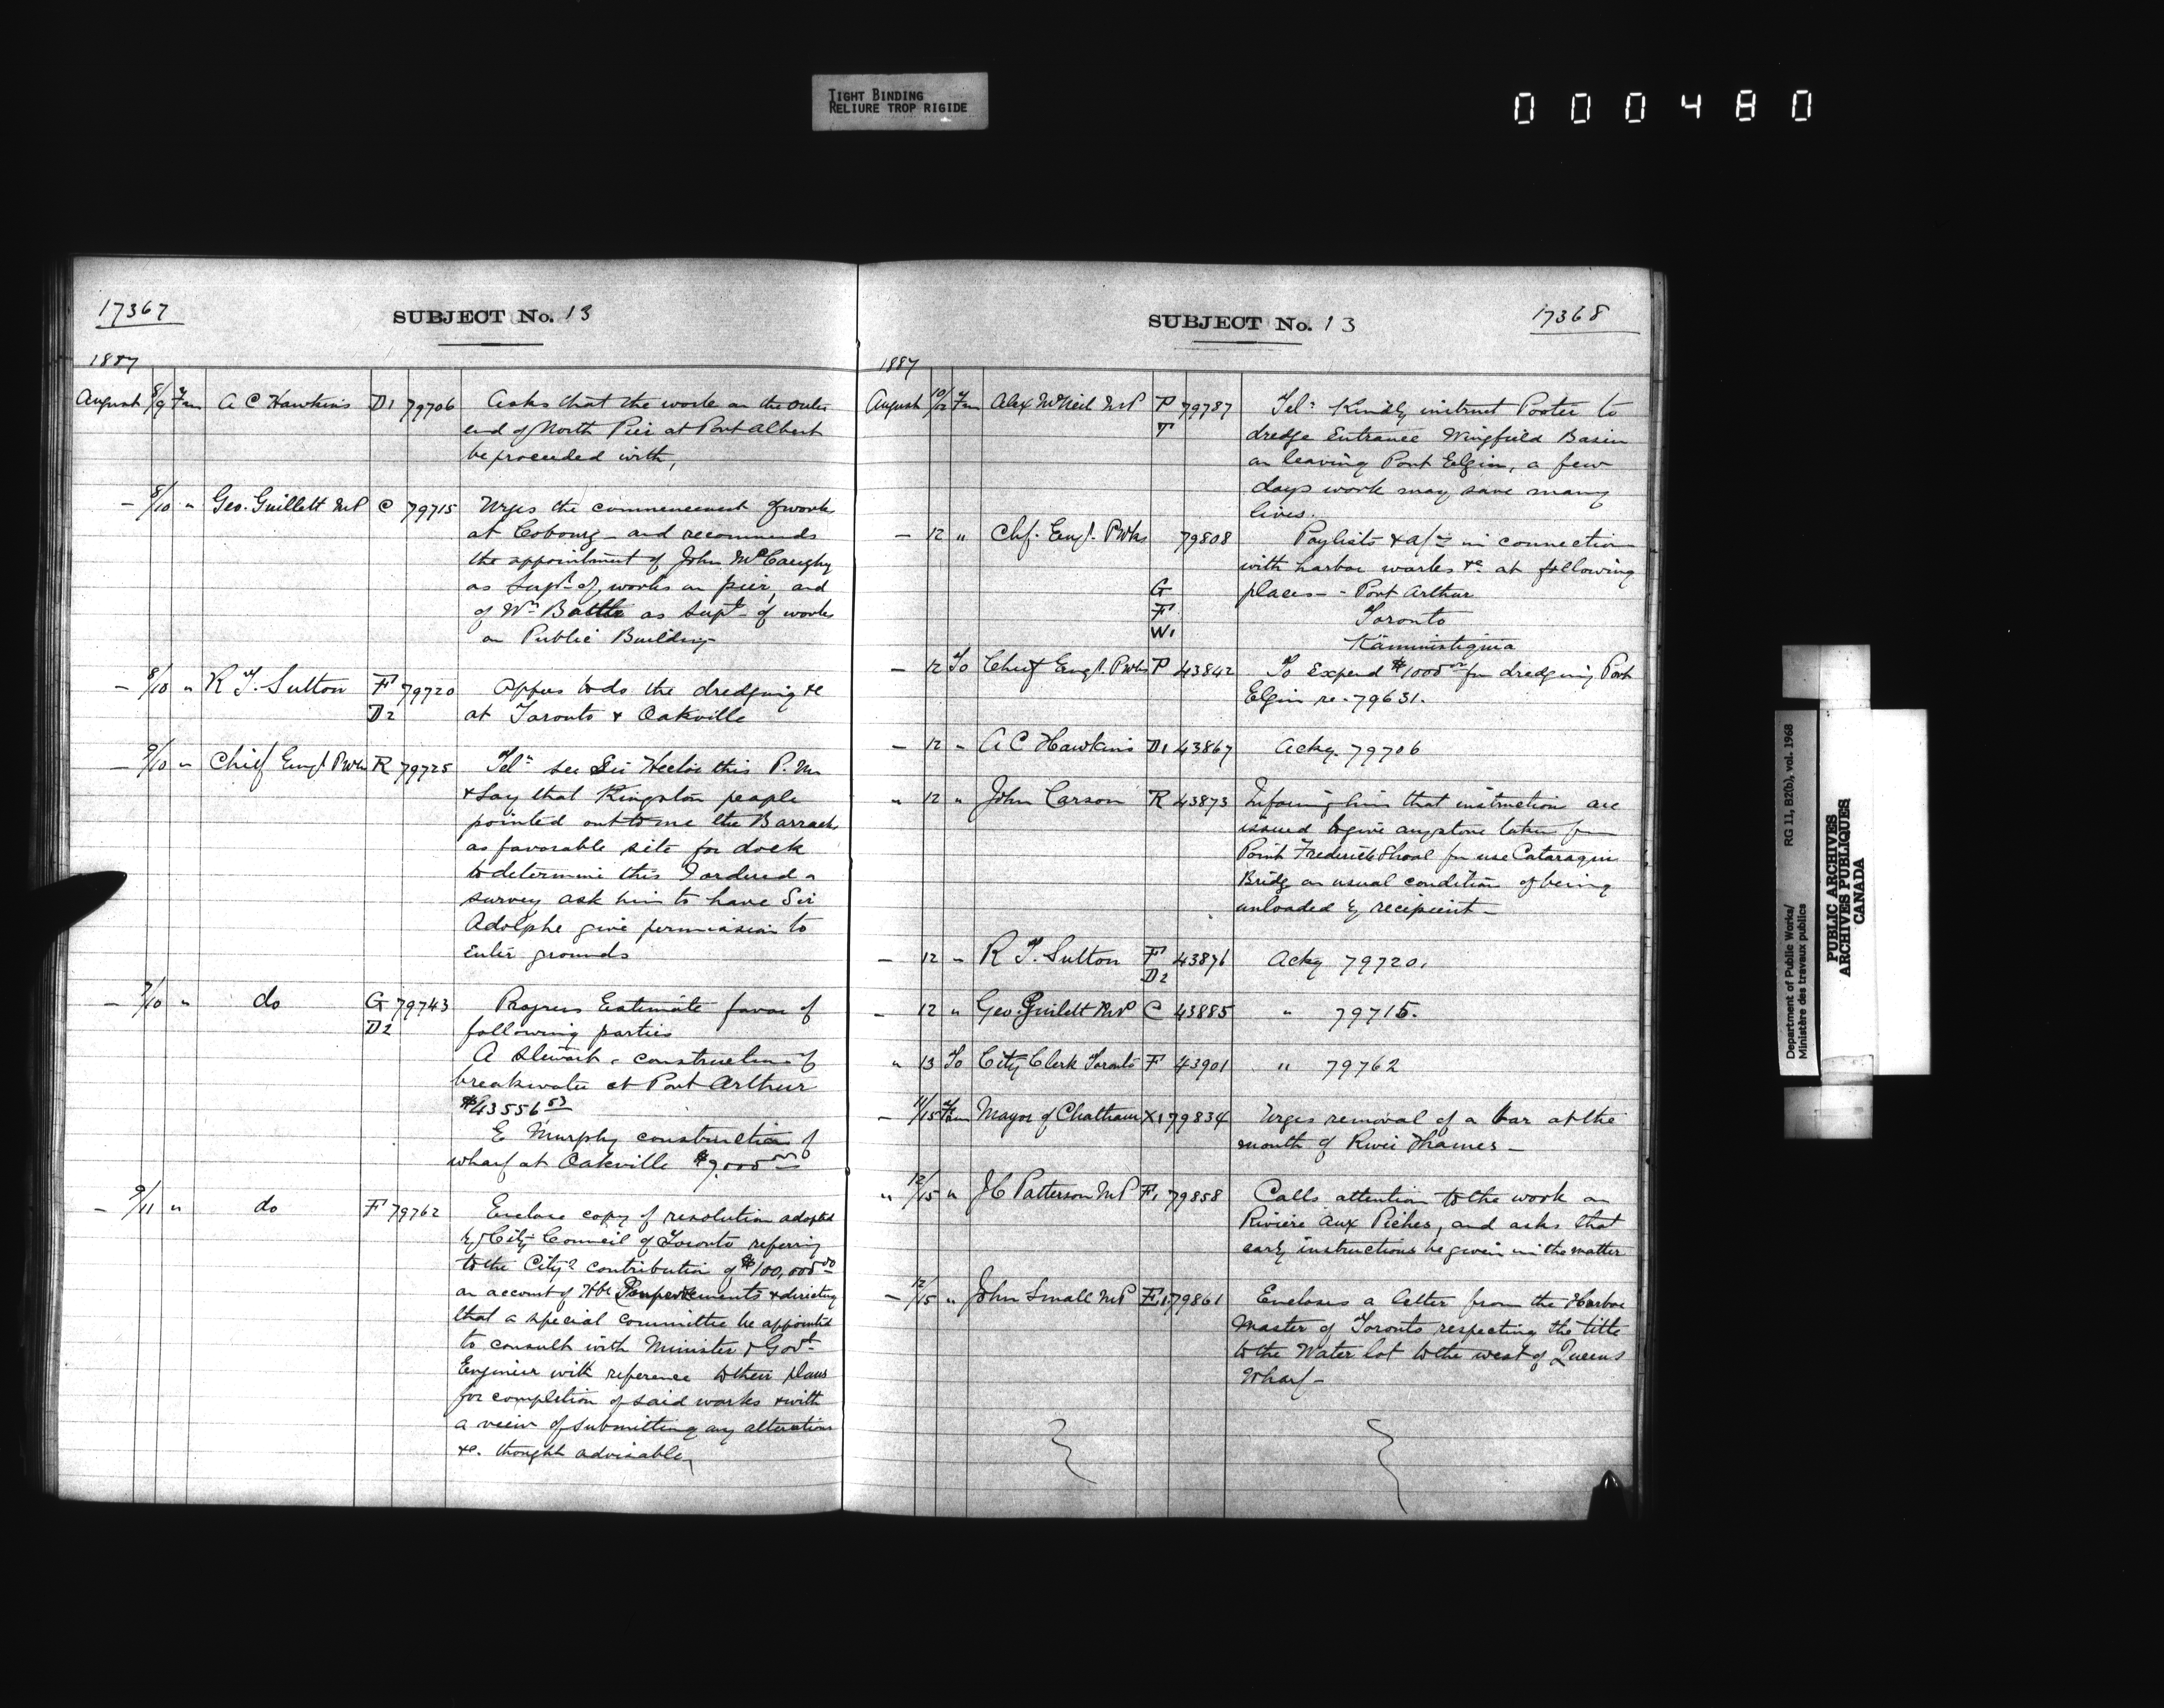 TIGHT BINDING
RELIURE TROP RIGIDE
000480
17367
SUBJECT No. 13
1887
August 8/9 Fm A C Hawkins D1 79706 Asks that the work on the outer
end of North Pier at Port Albert
be proceeded with,
— 8/10 " Geo. Guillett MP C 79715 Urges the commencement of work
at Cobourg - and recommends
the appointment of John McCaughy
as Supt of works on pier, and
of Wm Battle as Supt of works
on Public Building
— 8/10 " R T. Sutton F 79720 Offers to do the dredging &c
D2 at Toronto & Oakville
— 9/10 " Chief Engr PWks R 79725 Teln see Sir Hector this P.M.
& say that Kingston people
pointed out to me the Barrack
as favorable site for dock
to determine this I ordered a
survey ask him to have Sir
Adolphe give permission to
enter grounds
— 7/10 " do G 79743 Progress Estimate favor of
D2 following parties
A Stewart - construction of
breakwater at Port Arthur
$43556 53
E Murphy construction of
wharf at Oakville $7,000 00
— 9/11 " do F 79762 Enclose copy of resolution adopted
by City Council of Toronto referring
to the City's contribution of $100,000 00
on account of Hbr Improvements & directing
that a special committee be appointed
to consult with Minister & Govt
Engineer with reference to their plans
for completion of said works & with
a view of submitting any alterations
&c. thought advisable,
SUBJECT No. 13
17368
1887
August 10/12 Fm Alex McNeil MP P 79787 Teln Kindly instruct Porter to
T dredge Entrance Wingfield Basin
on leaving Port Elgin, a few
days work may save many
lives.
— 12 " Chf. Engr. PWks 79808 Paylists & a/cs in connection
with harbor works &c at following
G places - - Port Arthur
F Toronto
W1 Kaministiquia
— 12 To Chief Engr. PWks P 43842 To Expend $1000 00 for dredging Port
Elgin re - 79631.
— 12 " A C Hawkins D1 43867 Ackg. 79706
" 12 " John Carson R 43873 Informing him that instruction are
issued to give any stone taken from
Point Frederick Shoal for use Cataraqui
Bridge on usual condition of being
unloaded by recipient —
— 12 " R T. Sutton F 43876 Ackg 79720.
D2
— 12 " Geo. Guilett MP C 43885 " 79715.
" 13 To City Clerk Toronto F 43901 " 79762
— 11/15 Fm Mayor of Chatham X1 79834 Urges removal of a bar at the
mouth of River Thames —
" 12/15 " J C Patterson MP F1 79858 Calls attention to the work on
Riviere Aux Pêches, and asks that
early instructions be given in the matter
— 12/15 " John Small MP E1 79861 Encloses a letter from the Harbor
Master of Toronto respecting the title
to the Water lot to the west of Queens
Wharf —
Department of Public Works/ RG 11, B2(b), vol. 1968
Ministère des travaux publics
PUBLIC ARCHIVES
ARCHIVES PUBLIQUES
CANADA